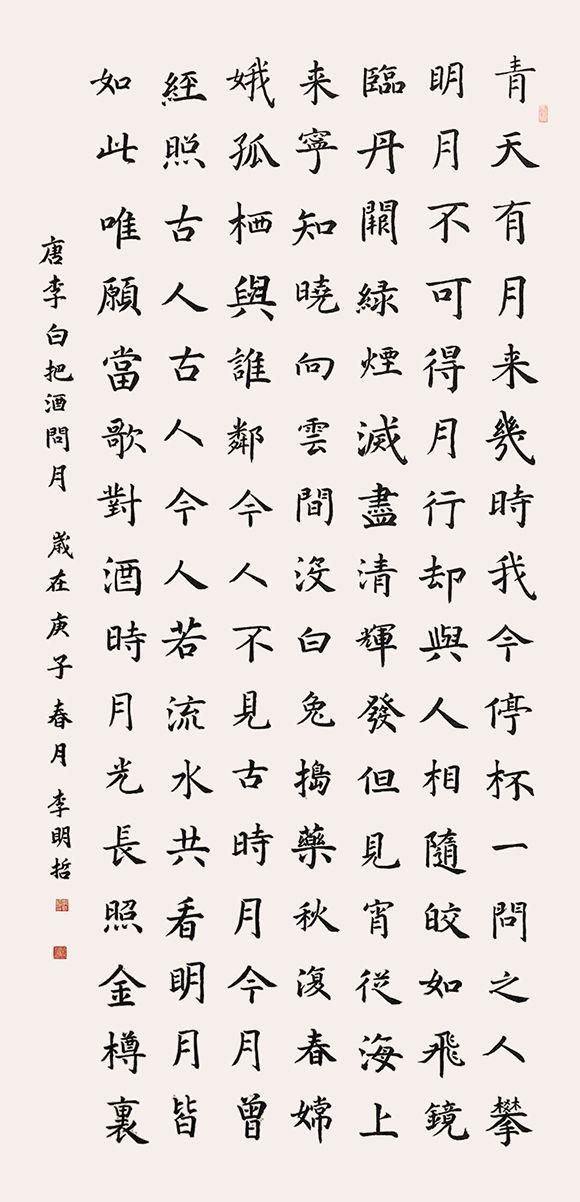 青天有月来幾時我今停杯一問之人攀
明月不可得月行却與人相隨皎如飛鏡
臨丹闕緑煙滅盡清輝發但見宵從海上
来寧知曉向雲間沒白兔搗藥秋復春嫦
娥孤栖與誰鄰今人不見古時月今月曾
經照古人古人今人若流水共看明月皆
如此唯願當歌對酒時月光長照金樽裏
唐李白把酒問月 歲在庚子春月 李明哲